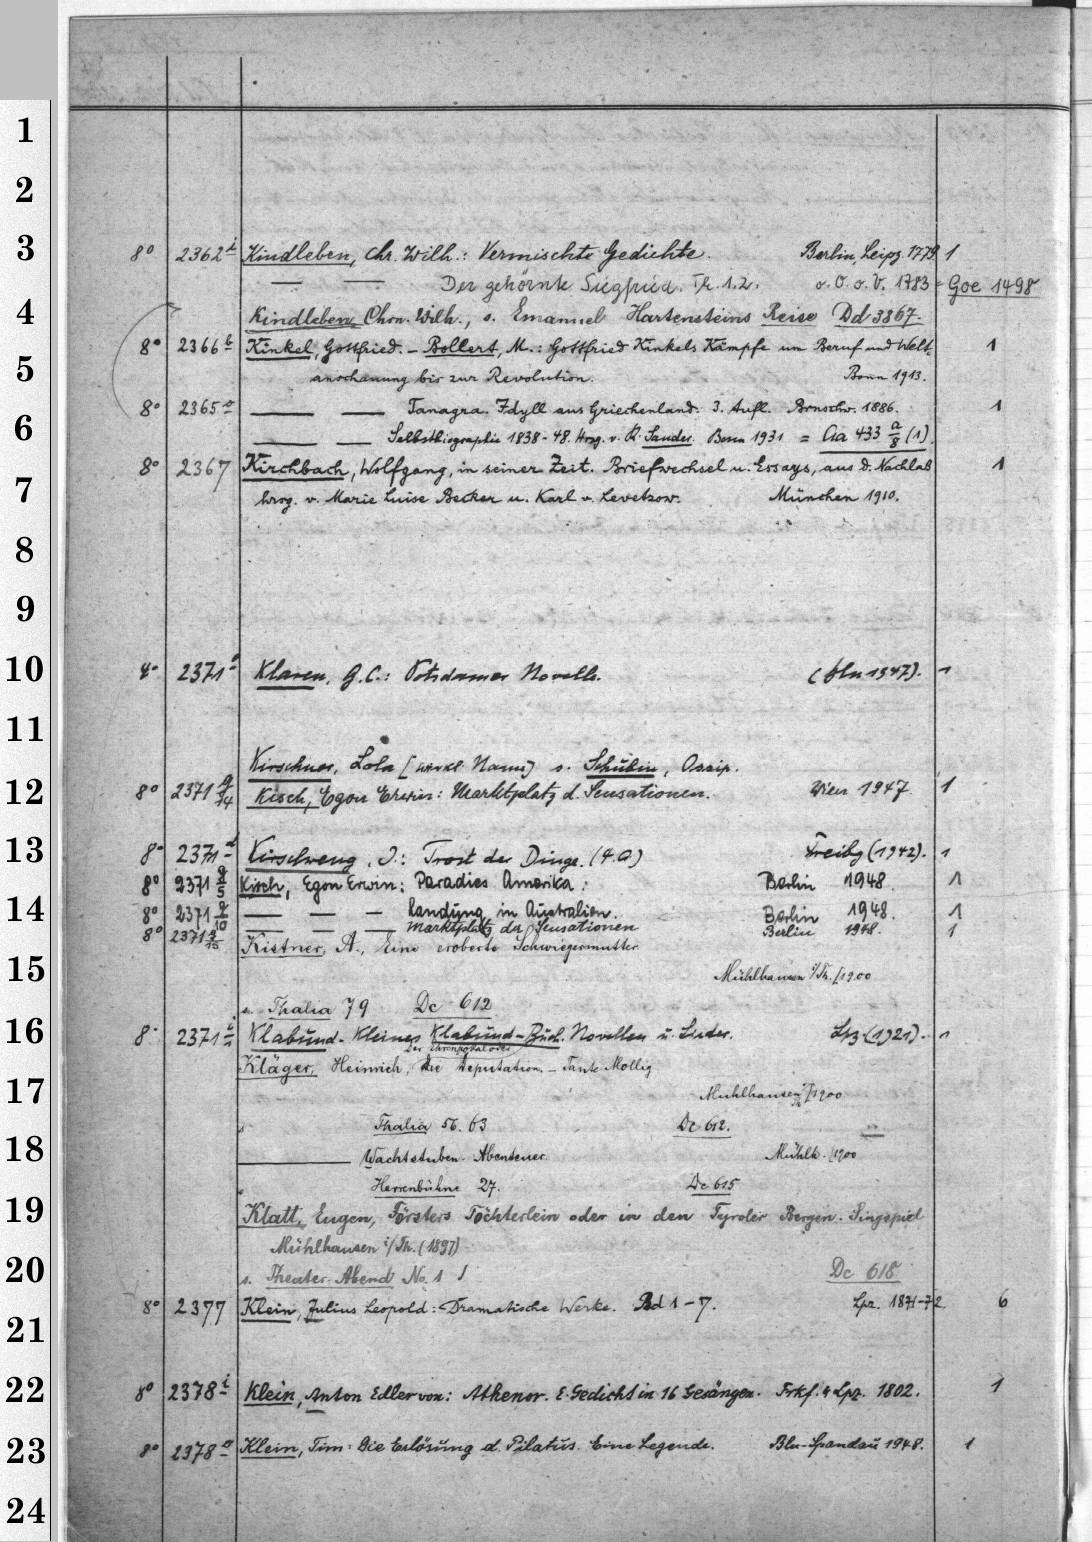 1
2
3 8° 2362 i Kindleben, Chr. Wilh.: Vermischte Gedichte. Berlin, Leipz. 1779 1
— — Der gehörnte Siegfried. Th. 1.2. o. O. o. V. 1783 = Goe 1498
4 Kindleben, Chrn. Wilh., s. Emanuel Hartensteins Reise Dd 3867.
8° 2366 b Kinkel, Gottfried. – Bollert, M.: Gottfried Kinkels Kämpfe um Beruf und Welt- 1
5 anschauung bis zur Revolution. Bonn 1913.
8° 2365 a — — Tanagra. Idyll aus Griechenland. 3. Aufl. Brnschw. 1886. 1
6 — — Selbstbiographie 1838-48. Hrsg. v. R. Sander. Bonn 1931 = Aa 433 a/8 (1).
8° 2367 Kirchbach, Wolfgang, in seiner Zeit. Briefwechsel u. Essays, aus d. Nachlaß 1
7 hrsg. v. Marie Luise Becker u. Karl v. Levetzow. München 1910.
8
9
10 4° 2371 Klaren, G.C.: Potsdamer Novelle. (Bln 1947). 1
11
Kirschner, Lola [wirkl. Name] s. Schubin, Ossip.
12 8° 2371 g/14 Kisch, Egon Erwin: Marktplatz d. Sensationen. Wien 1947. 1
13 8° 2371 d Kirschweng, J.: Trost der Dinge. (4. A) Freibg (1942). 1
8° 2371 g/5 Kisch, Egon Erwin: Paradies Amerika: Berlin 1948. 1
14 8° 2371 g/10 — — — Landung in Australien. Berlin 1948. 1
8° 2371 — — — Marktplatz der Sensationen Berlin 1948. 1
Kistner, A., Eine eroberte Schwiegermutter
15 Mühlhausen i/Th. [1900
s. Thalia 79 Dc 612
16 8° 2371 i Klabund. Kleines Klabund-Buch. Novellen u. Lieder. Lpz (1921). 1
Der Ehrenpokal oder
Kläger, Heinrich, die Deputation. – Tante Mollig
17 Mühlhausen i/Th [1900
s. Thalia 56. 63 Dc 612.
18 — Wachtstuben-Abenteuer. Mühlh. [1900
s. Herrenbühne 27. Dc 615
19 Klatt, Eugen, Försters Töchterlein oder in den Tyroler Bergen. Singspiel
Mühlhausen i/Th. (1897)
20 s. Theater-Abend No. 1 Dc 618
8° 2377 Klein, Julius Leopold: Dramatische Werke. Bd 1-7. Lpz. 1871-72. 6
21
22 8° 2378 i Klein, Anton Edler von: Athenor. E. Gedicht in 16 Gesängen. Frkf. u Lpz. 1802. 1
23 8° 2378 a Klein, Tim: Die Erlösung d. Pilatus. Eine Legende. Bln-Spandau 1948. 1
24